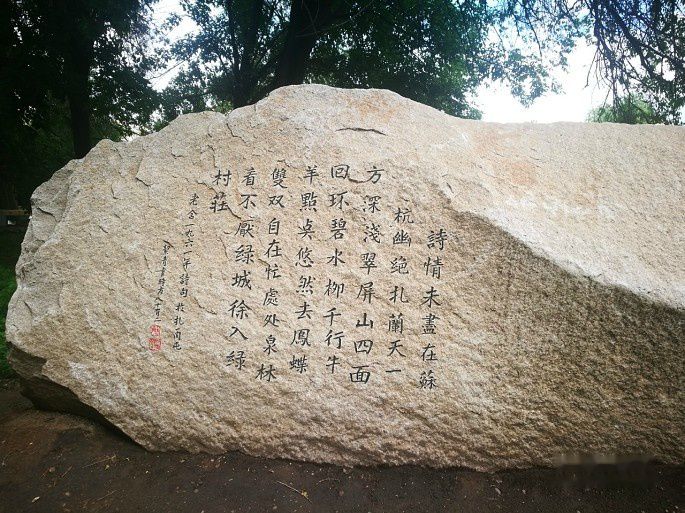 詩情未盡在蘇
杭幽绝扎蘭天一
方深淺翠屏山四面
回环碧水柳千行牛
羊點奌悠然去鳳蝶
雙双自在忙處处泉林
看不厭绿城徐入绿
村莊
老舍一九六一年詩句於扎蘭屯